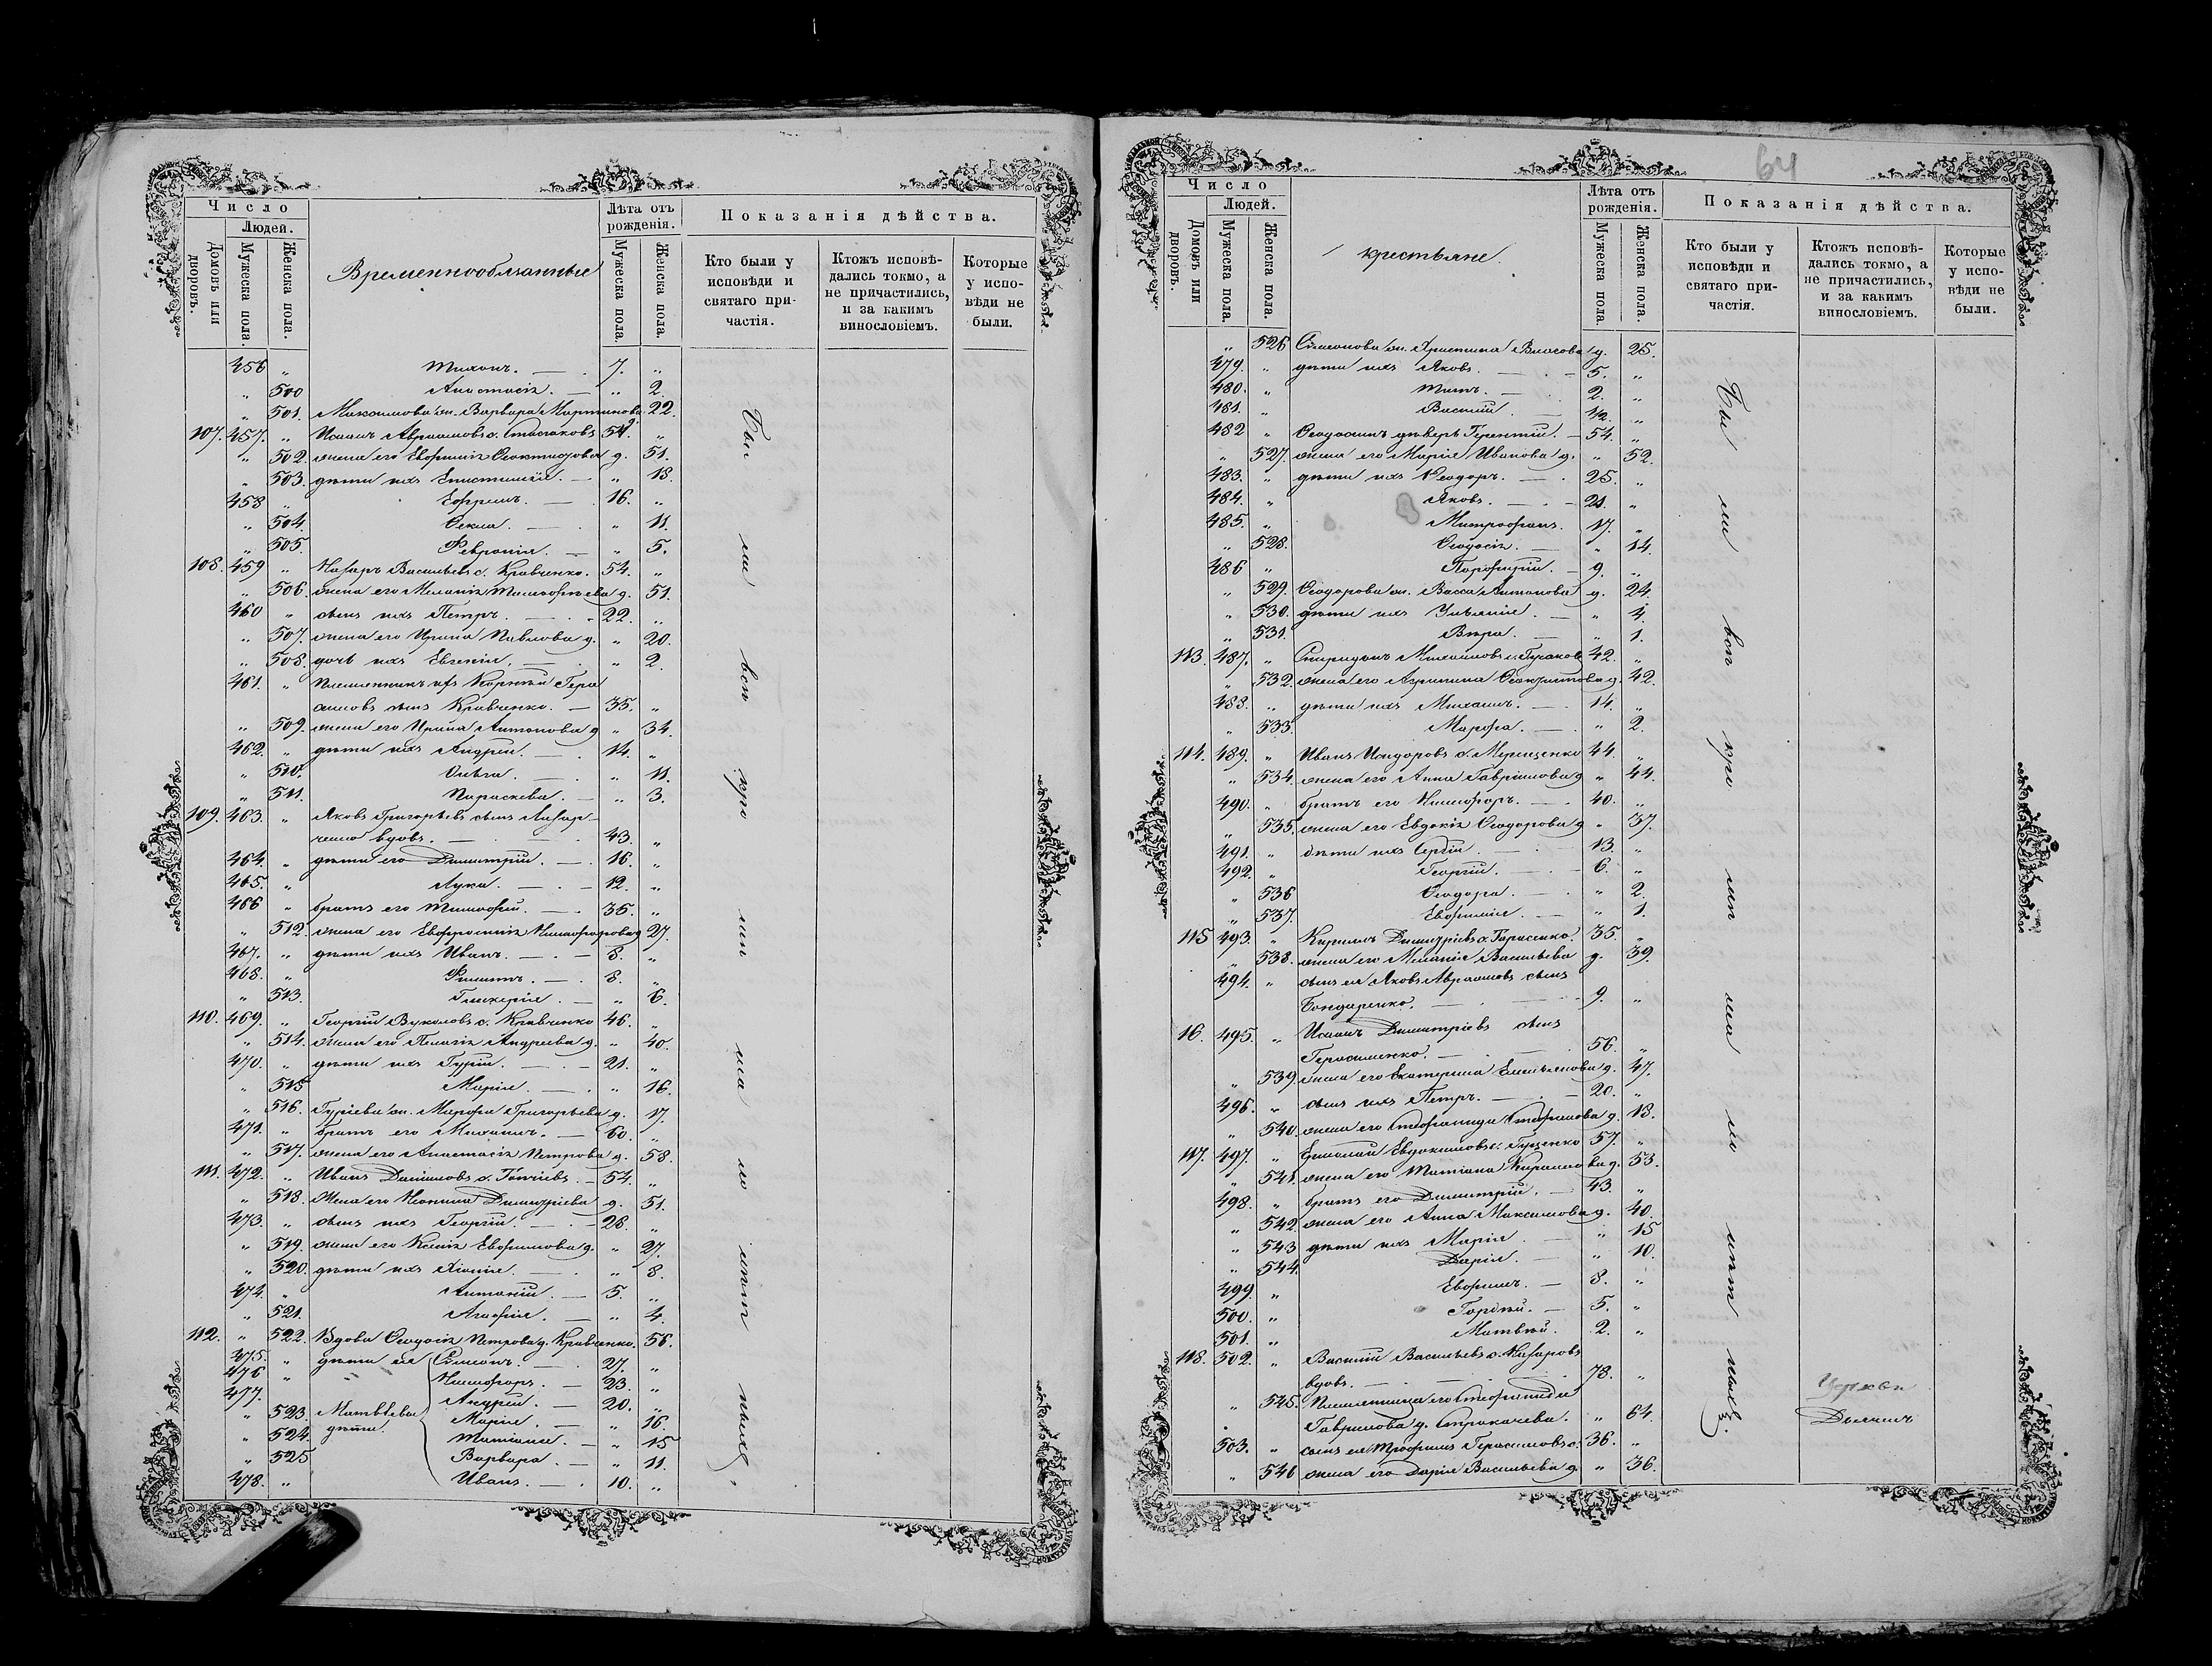 Число
Людей.
Домовъ или дворовъ.
Мужеска пола.
Женска пола.
Временнообязанные
Лѣта отъ рожденія.
Мужеска пола.
Женска пола.
Показанія дѣйства.
Кто были у исповѣди и святаго причастія.
Ктожъ исповѣдались токмо, а не причастились, и за какимъ винословіемъ.
Которые у исповѣди не были.
456 „ Тихонъ. — 7. „
„ 500 Анастасія. — „ 2.
„ 501. Максимова ж. Варвара Мартинова 22.
107. 457. „ Исаакъ Авраамовъ с. 54. „
„ 502. жена его Евфимія Феоктистова д. 51.
„ 503. дѣти ихъ Епистимія. — „ 18.
458 „ Ефремъ. — 16. „
„ 504. Фекла. — „ 11.
„ 505. Февронія. — „ 5.
108. 459 „ Назаръ Васильевъ с. Кравченко. 54. „
„ 506. жена его Меланія Тимофѣева д. 51.
460 „ сынъ ихъ Петръ. — 22. „
„ 507. жена его Ирина Павлова д. „ 20.
„ 508. дочь ихъ Евгенія. — „ 2.
461. „ Племенникъ ихъ Корнѣй Гера
симовъ сынъ Кравченко. — 35. „
„ 509. жена его Ирина Антонова д „ 34.
462. „ дѣти ихъ Андрей. — 14. „
„ 510. Ольга. — „ 11.
„ 511. Параскева. — „ 3.
109. 463. „ Яковъ Григорьевъ сынъ Лазар-
ченко вдовъ. — 43. „
464. „ дѣти его Димитрій. — 16. „
465. „ Лука. — 12. „
466 „ братъ его Тимофей. — 35. „
„ 512. жена его Евфросинія Никифорова д 27.
467. „ дѣти ихъ Иванъ. — 8. „
468. „ Филиппъ. — 8. „
„ 513. Гликерія. — „ 6.
110. 469. „ Георгій Вуколовъ с. Кравченко 46. „
„ 514. жена его Пелагія Андреева д. „ 40.
470. „ дѣти ихъ Гурій. — 21. „
„ 515 Марія. — „ 16.
„ 516. Гуріева ж. Марфа Григорьева д. 17.
471. „ братъ его Михаилъ. — 60. „
„ 517. жена его Анастасія Петрова д. 58.
111. 472. „ Иванъ Даніиловъ с. — 54. „
„ 518. Жена его Неонила Димитріева д. 51.
473. „ сынъ ихъ Георгій. — 28. „
„ 519. жена его Ксенія Евфимова д. „ 27.
„ 520. дѣти ихъ Хіонія. — „ 8.
474. „ Антоній. — 5. „
„ 521. Агафія. — „ 4.
112. „ 522. Вдова Феодосія Петрова д. Кравченко. 56.
475. „ дѣти ея Симеонъ. — 27. „
476 „ Никифоръ. — 23. „
477. Андрей. — 20. „
„ 523. Матвѣевы дѣти. Марія. — „ 16
„ 524. Татіана. — „ 15
„ 525 Варвара. — „ 11.
478. „ Иванъ. — 10. „
Бы ли вси
64
Число
Людей.
Домовъ или дворовъ.
Мужеска пола.
Женска пола.
крестьяне.
Лѣта отъ рожденія.
Мужеска пола.
Женска пола.
Показанія дѣйства.
Кто были у исповѣди и святаго причастія.
Ктожъ исповѣдались токмо, а не причастились, и за какимъ винословіемъ.
Которые у исповѣди не были.
„ 526 Симеонова ж. Христина Власова д. 25.
479. „ дѣти ихъ Яковъ. — 5. „
480. „ Титъ. — 2. „
481. „ Василій. — 1/2. „
482 „ Феодосіинъ дѣверь Терентій. — 54. „
„ 527. жена его Марія Иванова д. „ 52.
483. „ дѣти ихъ Феодоръ. — 25. „
484. „ Яковъ. — 21. „
485. „ Митрофанъ. 17. „
„ 528. Феодосія. — „ 14.
486 „ Порфирій. — 9. „
„ 529. Феодорова ж. Васса Антонова д. 24.
„ 530. дѣти ихъ Ульянія. — „ 4.
„ 531. Вѣра. — „ 1.
113. 487. „ Спиридонъ Михайловъ с. 42. „
„ 532. жена его Агрипина д. 42.
488. „ дѣти ихъ Михаилъ. — 14. „
„ 533. Марфа. — „ 2.
114. 489. „ Иванъ Исидоровъ с. 44. „
„ 534. жена его Анна Гавріилова д „ 44.
490. „ братъ его Никифоръ. — 40. „
„ 535. жена его Евдокія Феодорова д „ 37.
491. „ дѣти ихъ Сергій. — 13. „
492. „ Георгій. — 6. „
„ 536 Феодора. — „ 2.
„ 537. Евфимія. — „ 1.
115 493. „ Кириллъ Димитріевъ с. Тарасенко. 35. „
„ 538. жена его Меланія Васильева д. 39.
494. „ сынъ ея Яковъ Авраамовъ сынъ
Бондаренко. — 9. „
16. 495. „ Исаакъ Димитріевъ сынъ
Герасименко. — 56. „
„ 539. жена его Екатерина Емельянова д. 47.
496. „ сынъ ихъ Петръ. — 20. „
„ 540. жена его Стефанида Стефанова д. 18.
117. 497. „ Ермолай Евдокимовъ с. Гуценко 57. „
„ 541. жена его Татіана Кириллова д. 53.
498. „ братъ его Димитрій. — 43. „
„ 542 жена его Анна Максимова д. 40.
„ 543 дѣти ихъ Марія. — „ 15
„ 544. Дарія. — „ 10.
499. „ Евфимъ. — 8. „
500. „ Гордѣй. — 5. „
501. „ Матвѣй. 2. „
118. 502. „ Василій Васильевъ с. Назаровъ
вдовъ. — 78. „
„ 545. Племянница его Стефанида
Гаврилова д. „ 64.
503. „ сынъ ея Трофимъ Герасимовъ с. 36. „
„ 546 жена его Дарія Васильева д „ 36.
Бы ли вси